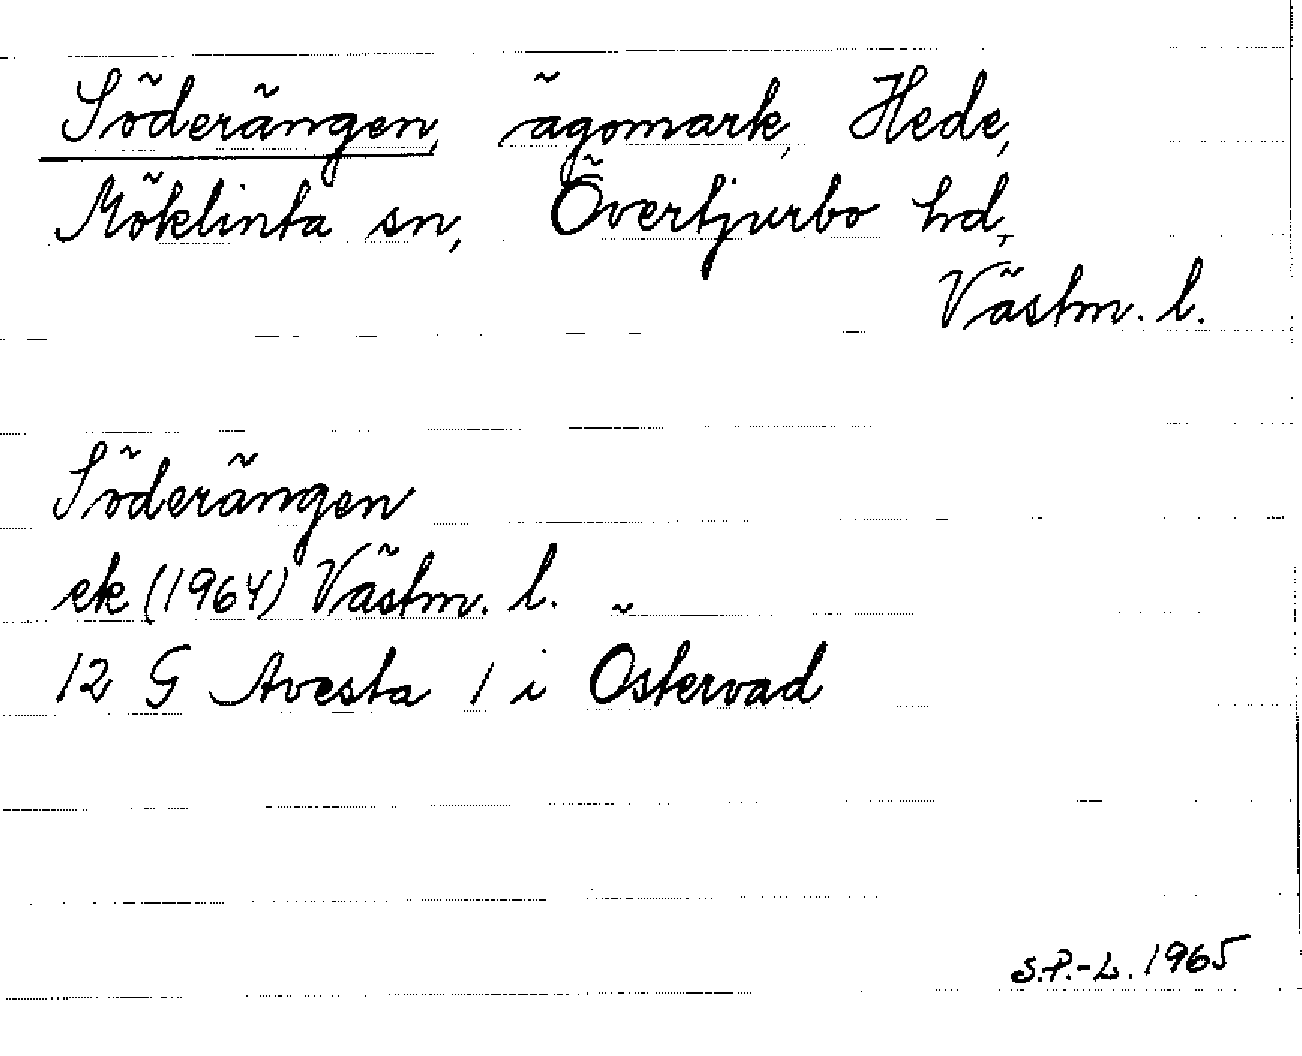 Söderängen, ägomark, Hede,
Möklinta sn, Övertjurbo hd,
Västm. l.
Söderängen
ek (1964) Västm. l.
12 G Avesta 1 i Östervad
S.P.-L. 1965